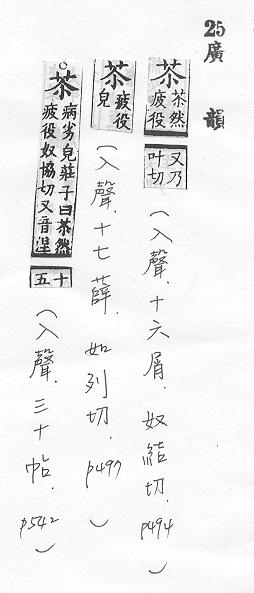 25 廣韻
苶 苶然疲役 又乃叶切 (入聲.十六屑.奴結切.p494)
苶 疲役皃 (入聲.十七薛.如列切.p497)
○苶 病劣皃莊子曰苶然疲役奴協切又音涅 十五 (入聲.三十帖.p542)